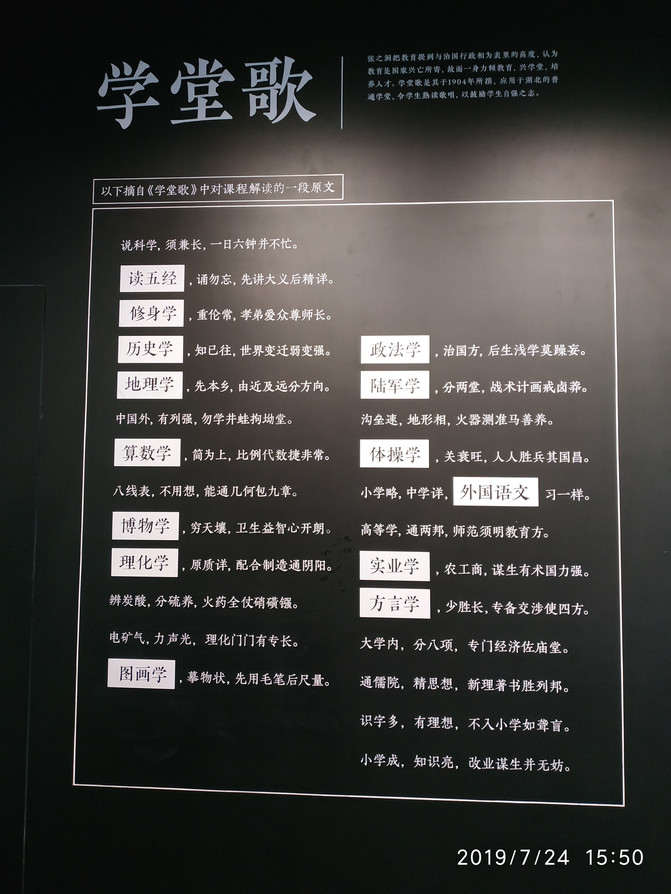 学堂歌
张之洞把教育提到与治国行政相为表里的高度，认为
教育是国家兴亡所寄，故而一身力倾教育，兴学堂，培
养人才。学堂歌是其于1904年所撰，应用于湖北的普
通学堂，令学生熟读歌唱，以鼓励学生自强之志。
以下摘自《学堂歌》中对课程解读的一段原文
说科学，须兼长，一日六钟并不忙。
读五经，诵勿忘，先讲大义后精详。
修身学，重伦常，孝弟爱众尊师长。
历史学，知已往，世界变迁弱变强。
地理学，先本乡，由近及远分方向。
中国外，有列强，勿学井蛙拘坳堂。
算数学，简为上，比例代数捷非常。
八线表，不用想，能通几何包九章。
博物学，穷天壤，卫生益智心开朗。
理化学，原质详，配合制造通阴阳。
辨炭酸，分硫养，火药全仗硝磺镪。
电矿气，力声光，理化门门有专长。
图画学，摹物状，先用毛笔后尺量。
政法学，治国方，后生浅学莫躁妄。
陆军学，分两堂，战术计画戒卤莽。
沟垒速，地形相，火器测准马善养。
体操学，关衰旺，人人胜兵其国昌。
小学略，中学详，外国语文 习一样。
高等学，通两邦，师范须明教育方。
实业学，农工商，谋生有术国力强。
方言学，少胜长，专备交涉使四方。
大学内，分八项，专门经济佐庙堂。
通儒院，精思想，新理著书胜列邦。
识字多，有理想，不入小学如聋盲。
小学成，知识亮，改业谋生并无妨。
2019/7/24 15:50